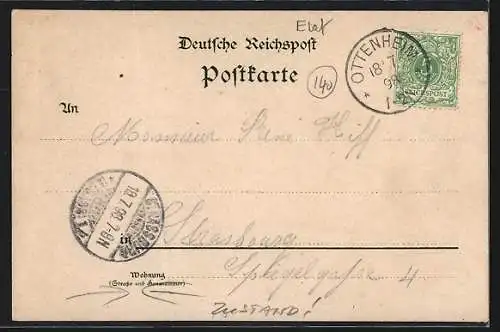 Elat
Deutsche Reichspost
Postkarte
140
OTTENHEIM
18 7
98
REICHSPOST
An
Monsieur René Kiff
18.7.98.7-8N
in Strassburg
Spiegelgasse 4
Wohnung
(Straße und Hausnummer)
ZUSTAND!